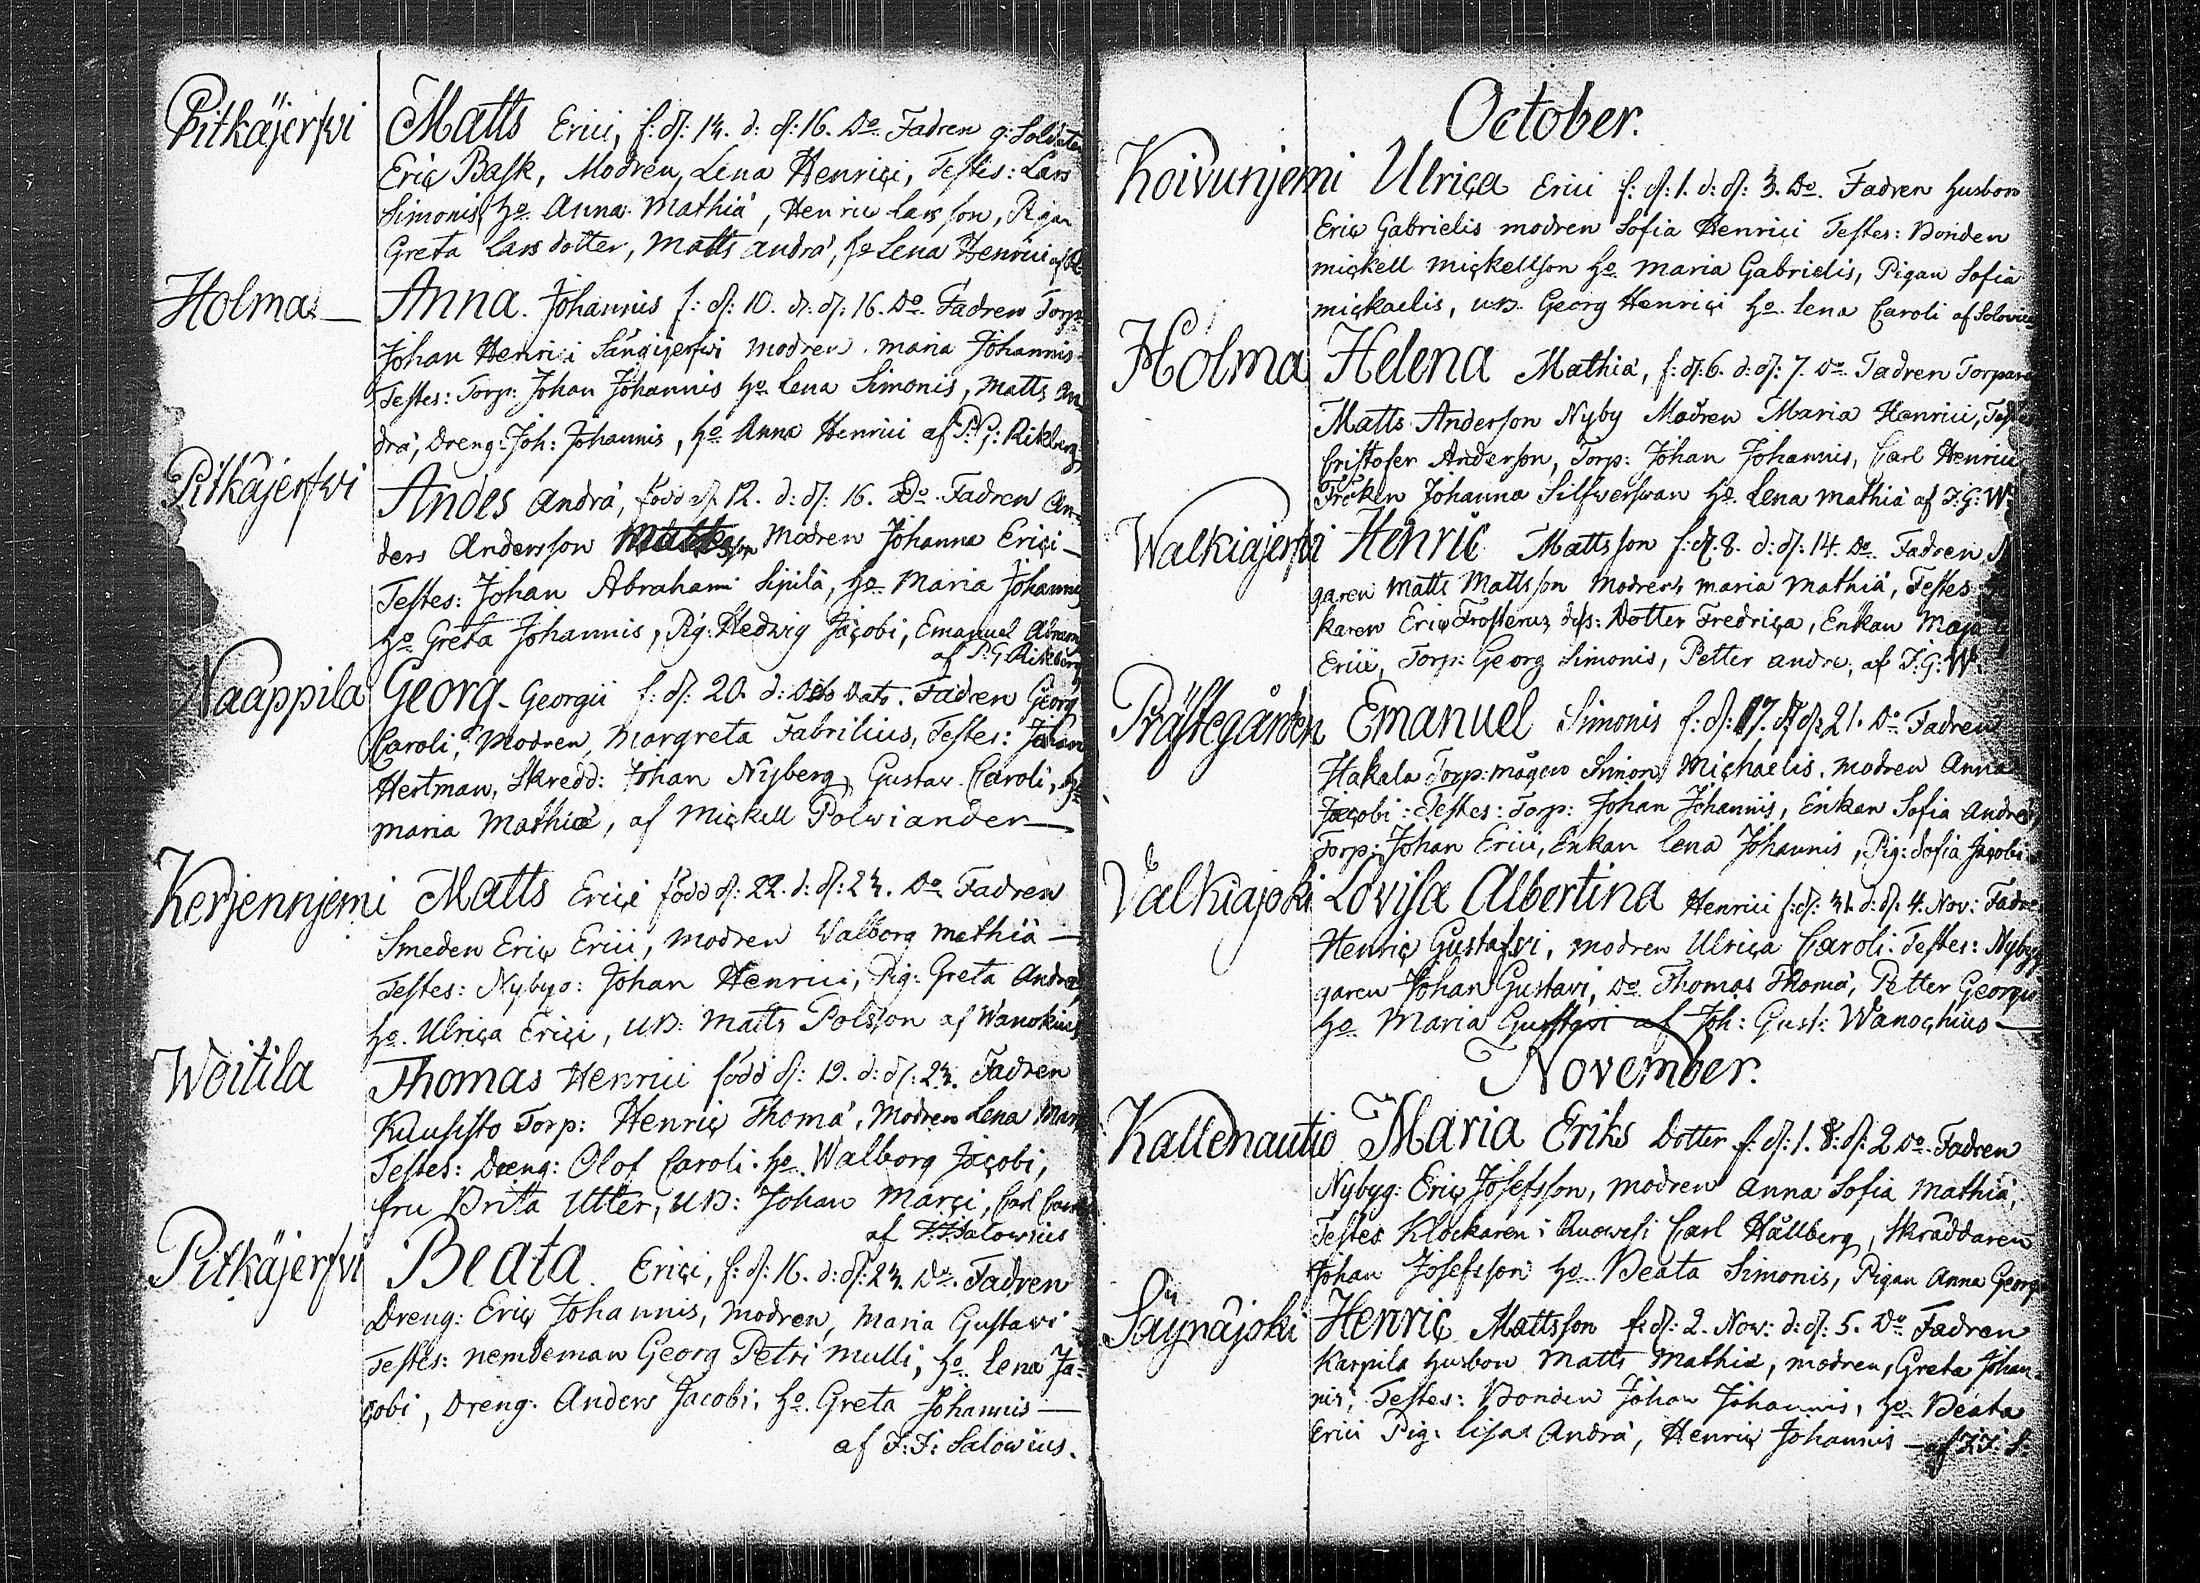 Pitkäjerfwi Matts Erici, f: d: 14. d: d: 16. Do. Fadren g: Soldaten
Eric Bask, Modren, Lena Henrici, Testes: Lars
Simonis, ho. Anna Mathiä, Henric Larsson, Pigan
Greta Lars dotter, Matts andrä, ho Lena Henrici
Holma Anna. Johannis f: d: 10. d: d: 16. Do. Fadren Torp:
Johan Henrici Sängijerfwi modren. maria Johannis
Testes: Torp: Johan Johannis ho. Lena Simonis, Matts An
drä, Dreng: Joh: Johannis, ho. Anna Henrici af P: G: Rikberg
Pitkäjerfwi Andes andrä, född d. 12. d: d: 16. Do. Fadren An-
ders Andersson Modren Johanna Erici
Testes: Johan Abrahami Sipilä, ho. Maria Johannis
ho. Greta Johannis, Pig: Hedwig Jacobi, Emanuel Abram
af P: G. Rikberg
Naappila Georg. Georgii f: d: 20. d: Dato. Fadren Georg
Caroli, Modren, Margreta Fabrilius, Testes: Johan
Hertman, Skredd: Johan Nyberg, Gustav. Caroli, ho
maria Mathiæ, af Mickell Polwiander
Kerjennjemi Matts Erici född d: 22. d: d: 24. Do Fadren
Smeden Eric Erici, modren Valborg mathiä
Testes: Nybyg: Johan Henrici, Pig: Greta Andrä,
ho. Ulrica Erici, UD: Matts Polsson af Wanokius
Woitila Thomas Henrici född d: 19. d: d: 24. Fadren
Kuusisto Torp: Henric Thomä, Modren Lena
Testes: Dreng: Olof Caroli. ho. Walborg Jacobi,
fru Brita Utter, UD: Johan Marci, Carl
af F: F: Salowius
Pitkäjerfwi Beata. Erici, f: d: 16. d: d: 24. Do. Fadren
Dreng: Eric Johannis, modren, maria Gustavi
Testes: nemdeman Georg Petri mulli, ho. Lena Ja-
cobi, Dreng. Anders Jacobi, ho. Greta Johannis
af F: F: Salowius.
October.
Koivunjemi Ulrica Erici f: d: 1. d: d: 3. Do. Fadren husbon
Eric Gabrielis modren Sofia Henrici Testes: Bonden
mickell mickellson ho. maria Gabrielis, Pigan Sofia
mickaelis, UD. Georg Henrici ho. Lena Caroli af
Holma Helena Mathiä, f: d: 6. d: d: 7. Do. Fadren Torparen
Matts Anderson Nyby Modren Maria Henrici, Testes
Cristofer Anderson, Torp: Johan Johannis, Carl Henrici
Fröken Johanna Silfwerswan ho. Lena mathiä af F: G: W:
Walkiajerfwi Henric Mattsson f: d: 8. d: d: 14. Do. Fadren, N
garen Matts Mattsson Modren maria Mathiä, Testes
karen Eric Frosterus, dess: Dotter Fredrica, Enkan Maja
Erici, Torp: Georg Simonis, Petter andre, af F: G: W.
Prästegården Emanuel Simonis f: d: 17. d: d: 21. Do. Fadren
Hakala Torp: mågen Simon Michaelis, modren Anna
Jacobi: Testes: Torp: Johan Johannis, Enkan Sofia Andreä,
Torp: Johan Erici, Enkan Lena Johannis, Pig: Sofia Jacobi
Valkiajoki Lovisa Albertina Henrici f: d: 31. d: d: 4. Nov: Fadren
Henric Gustafvi, modren Ulrica Caroli: Testes: Nybyg
garen Johan Gustavi, Do. Thomas Thomä, Petter Georgii
ho. Maria Gustavi af Joh: Gust: Wanochius
November.
Kallenautio Maria Eriks Dotter f: d: 1. d: d: 2 Do. Fadren
Nybyg: Eric Josefsson, modren Anna Sofia Mathiä,
Testes Klockaren i Ruowesi Carl Hållberg, Skräddaren
Johan Josefsson ho. Beata Simonis, Pigan Anna Georgi
Säynäjoki Henric Mattsson f: d: 2. Nov: d: d: 5. Do. Fadren
Karpila husbon Matts Mathiä, modren, Greta Johan-
nis, Testes: Bonden Johan Johannis, ho. Beata
Erici Pig: Lisa Andrä, Henric Johannis af F: F: S: